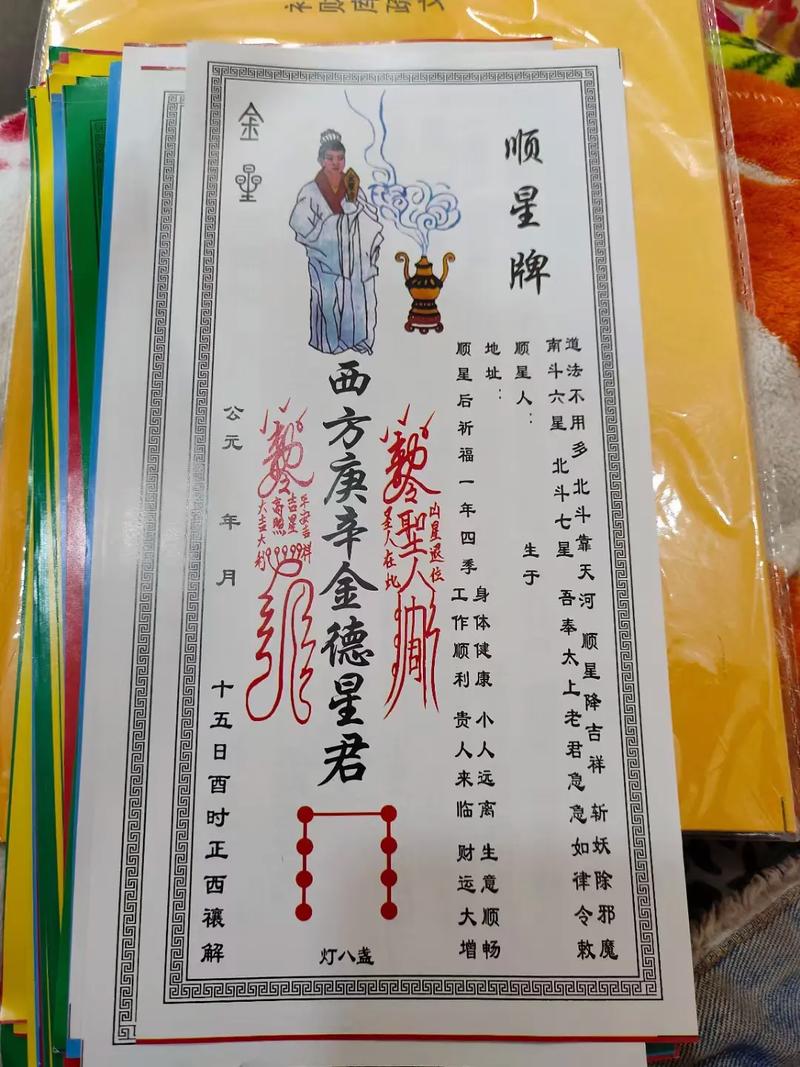 顺星牌
道法不用多 北斗靠天河 顺星降吉祥 斩妖除邪魔
南斗六星 北斗七星 吾奉太上老君急急如律令敕
顺星人： 生于
地址：
顺星后祈福一年四季
身体健康 小人远离 生意顺畅
工作顺利 贵人来临 财运大增
凶星退位
聖人
圣人在此
西方庚辛金德星君
平安吉祥
吉星
高照
大吉大利
灯八盏
金星
公元 年 月 十五日酉时正西禳解